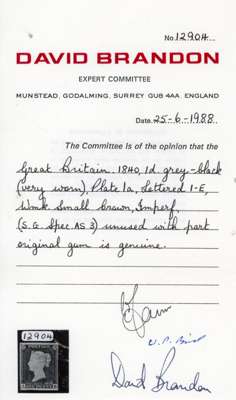 No. 12904
DAVID BRANDON
EXPERT COMMITTEE
MUNSTEAD, GODALMING, SURREY GU8 4AA. ENGLAND
Date. 25-6-1988.
The Committee is of the opinion that the
Great Britain. 1840, 1d grey-black
(very worn), Plate 1a, Lettered I-E,
Wmk Small Crown, Imperf,
(S.G Spec AS 3) unused with part
original gum is genuine.
12904
David Brandon